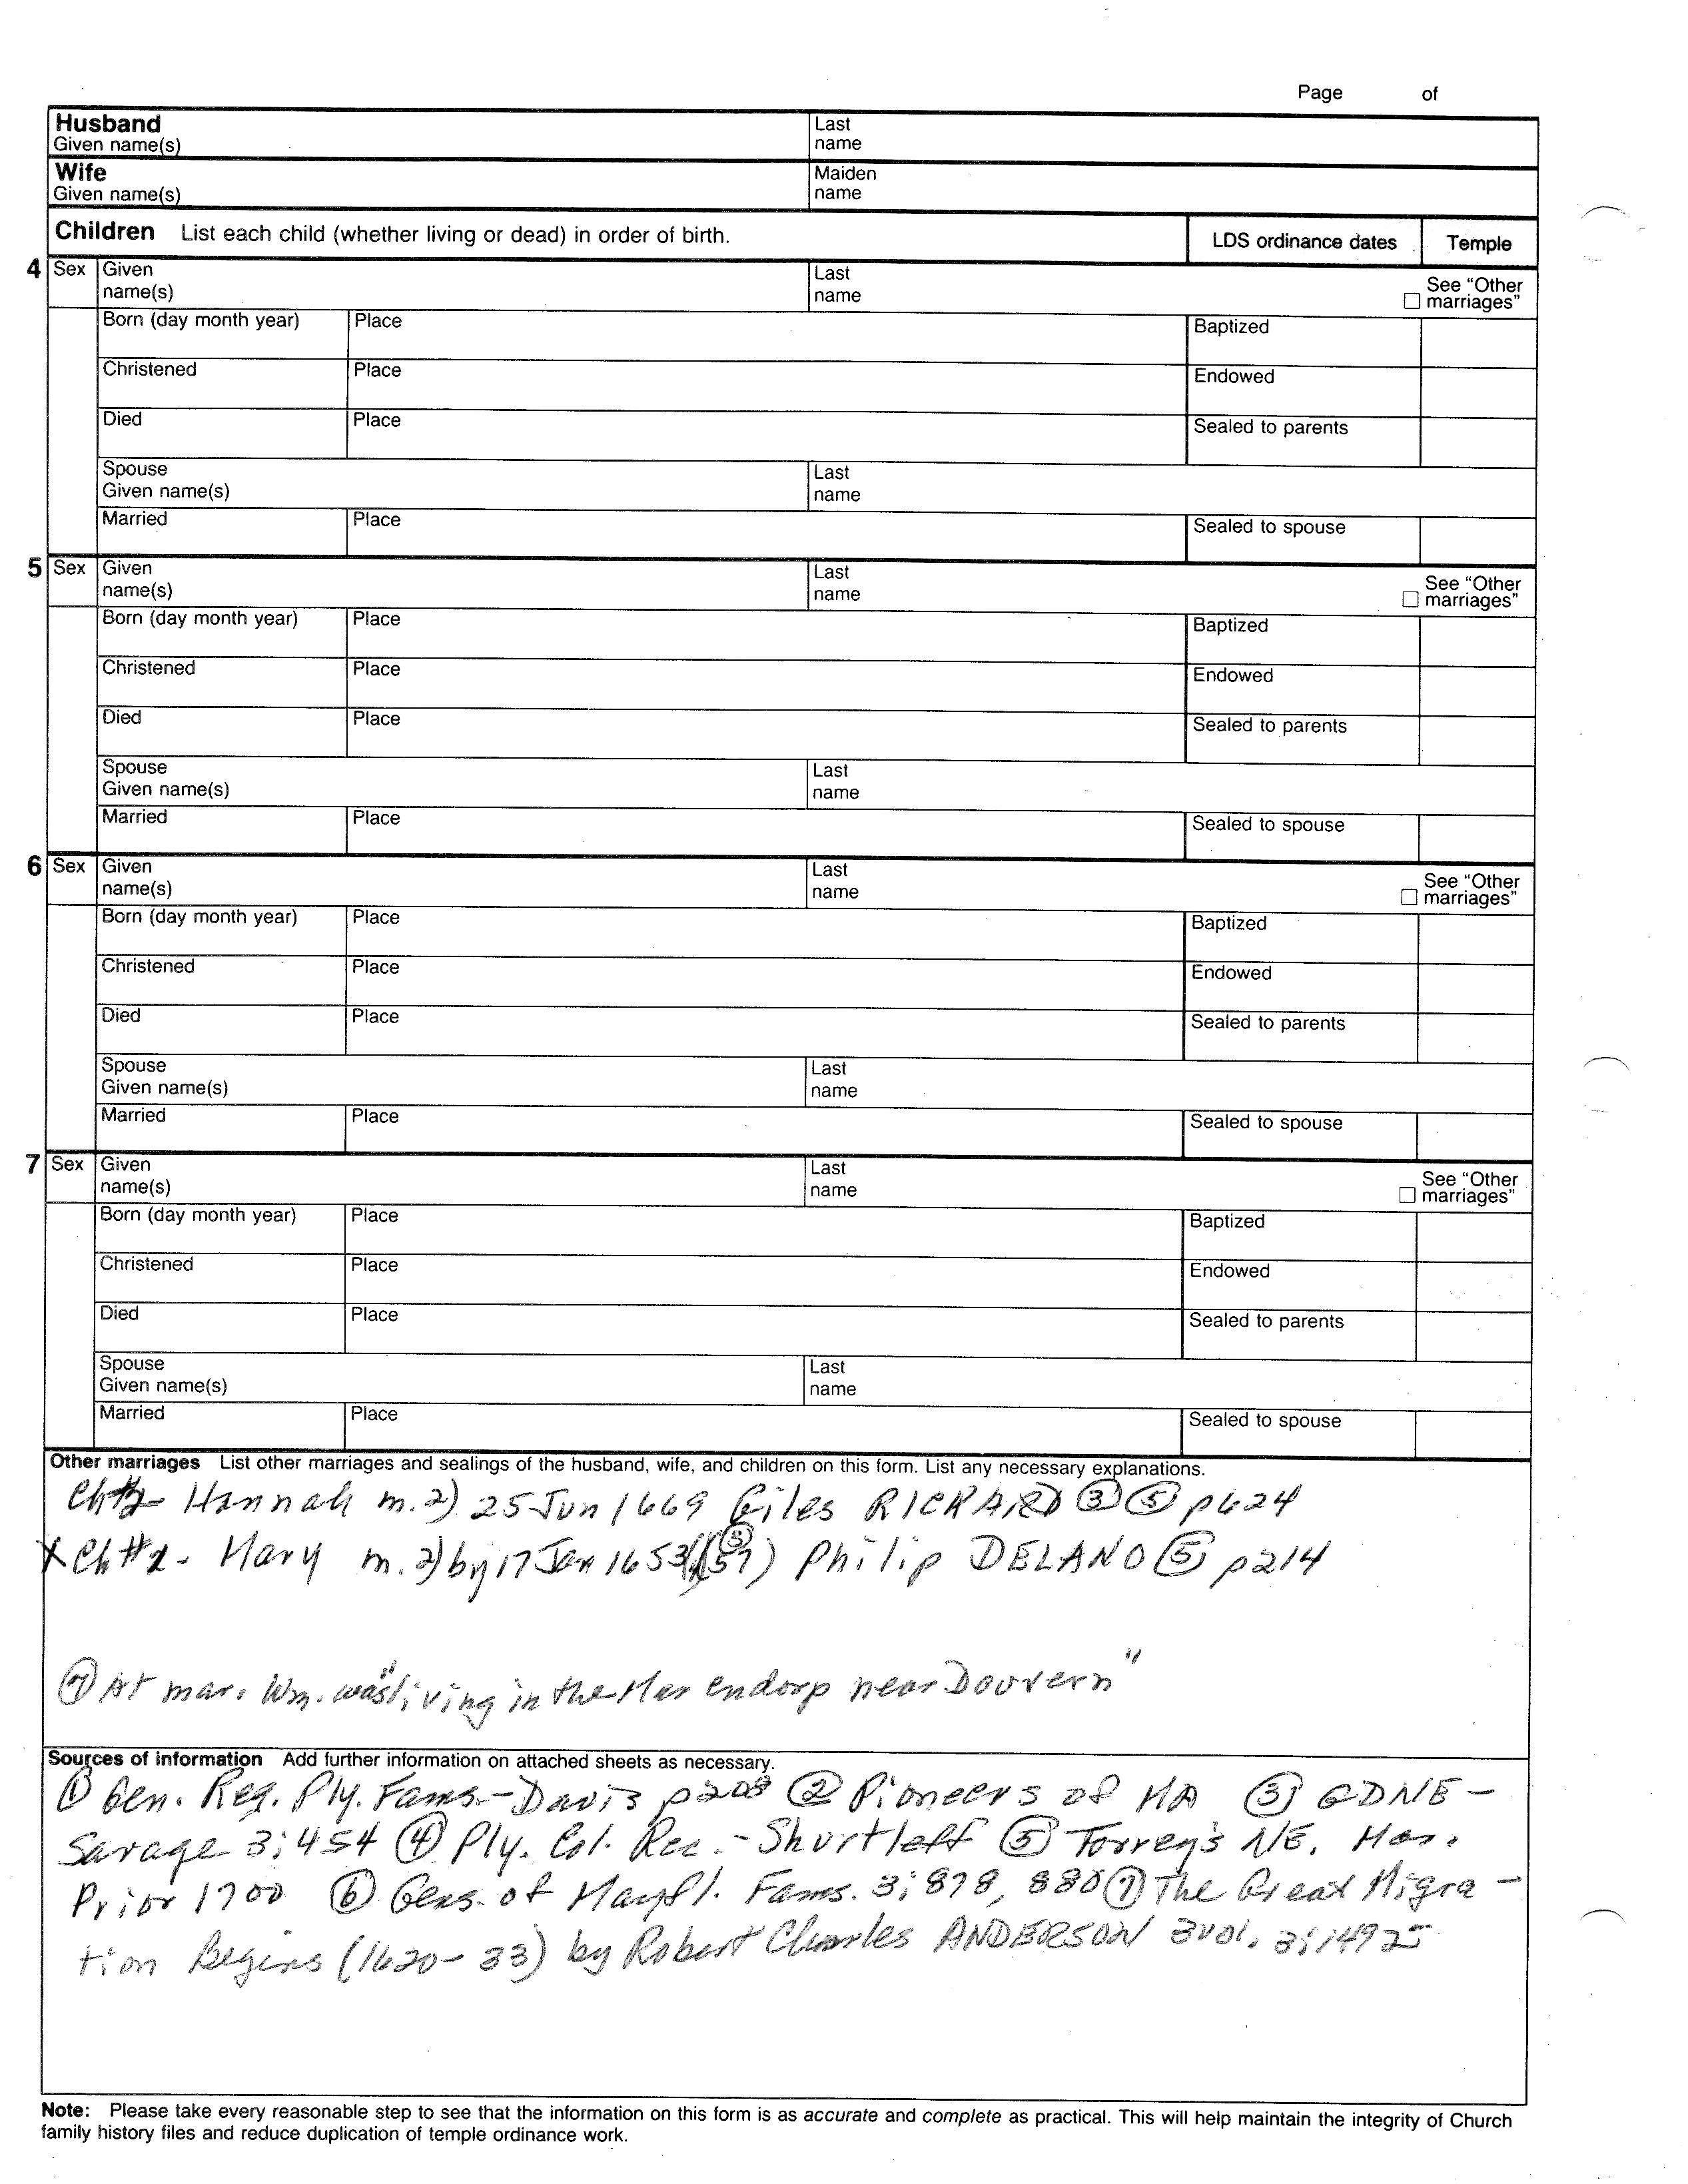 Page of
Husband
Given name(s)
Last
name
Wife
Given name(s)
Maiden
name
Children List each child (whether living or dead) in order of birth.
LDS ordinance dates
Temple
4 Sex Given
name(s)
Last
name
See “Other
marriages”
Born (day month year) Place Baptized
Christened Place Endowed
Died Place Sealed to parents
Spouse
Given name(s)
Last
name
Married Place Sealed to spouse
5 Sex Given
name(s)
Last
name
See “Other
marriages”
Born (day month year) Place Baptized
Christened Place Endowed
Died Place Sealed to parents
Spouse
Given name(s)
Last
name
Married Place Sealed to spouse
6 Sex Given
name(s)
Last
name
See “Other
marriages”
Born (day month year) Place Baptized
Christened Place Endowed
Died Place Sealed to parents
Spouse
Given name(s)
Last
name
Married Place Sealed to spouse
7 Sex Given
name(s)
Last
name
See “Other
marriages”
Born (day month year) Place Baptized
Christened Place Endowed
Died Place Sealed to parents
Spouse
Given name(s)
Last
name
Married Place Sealed to spouse
Other marriages List other marriages and sealings of the husband, wife, and children on this form. List any necessary explanations.
Hannah m. 2) 25 Jun 1669 Giles RICKARD ③ ⑤ p624
Mary m. 2) by 17 Jan 1653/ Philip DELANO ⑤ p214
⑦ At mar. Wm. was "living in the near Douvern"
Sources of information Add further information on attached sheets as necessary.
① Gen. Reg. Ply. Fams.-Davis p208 ② Pioneers of MA ③ GDNE-
Savage 3:454 ④ Ply. Col. Rec.-Shurtleff ⑤ Torrey's N.E. Mar.
Prior 1700 ⑥ Gens. of Mayfl. Fams. 3:878, 880 ⑦ The Great Migra-
tion Begins (1620-33) by Robert Charles ANDERSON 3vol. 3:
Note: Please take every reasonable step to see that the information on this form is as accurate and complete as practical. This will help maintain the integrity of Church
family history files and reduce duplication of temple ordinance work.